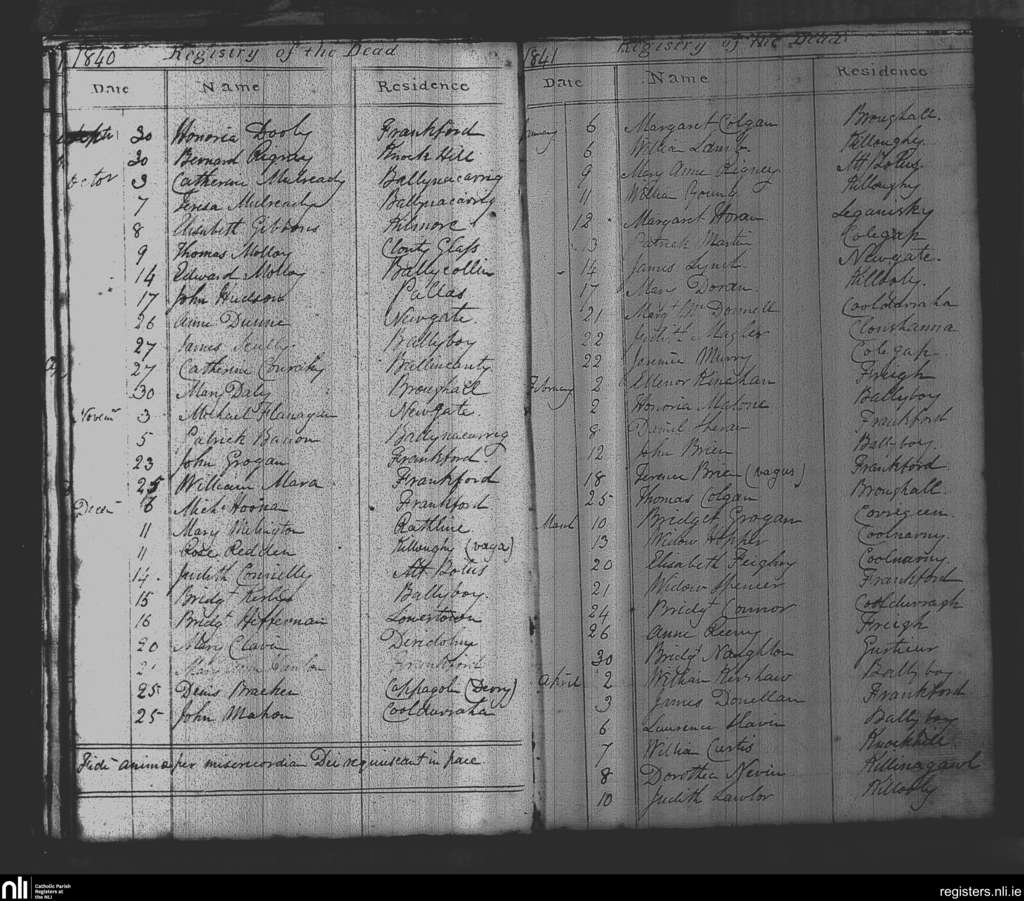 1840 Registry of the Dead
Date Name Residence
Septr 30 Honoria Dooly Frankford
30 Bernard Rigney Knock Hill
Octor 3 Catherine Mulready Ballynacarrig
7 Teresa Mulready Ballynacarrig
8 Elisabeth Gibbons Kilmore
9 Thomas Molloy Clonty Glass
14 Edward Molloy Ballycollin
17 John Hudson Pallas
26 Anne Dunne Newgate
27 James Scully Ballyboy
27 Catherine Ballincanty
30 Mary Daly Broughall
Novem 3 Michael Flanagan Newgate.
5 Patrick Bacon Ballynacarrig
23 John Grogan Frankford
25 William Mara Frankford
Decem 6 Mich. Frankford
11 Mary Rathline
11 Rose Redden Killoughy (vaga)
14. Judith Connelly Att Bolus
15 Bridgt Ballyboy.
16 Bridgt Heffernan Lowertown
20 Mary Clavin
21 Mary Frankford
25 Denis Bracken Cappagolin (Derry)
25 John Mahon Cooldurraha
Fidm animae per misericordiam Dei requiescant in pace
1841 Registry of the Dead
Date Name Residence
January 6 Margaret Colgan Broughall.
6 William Lamb Killoughy
9 Mary Anne Rigney Att Bolus
11 Killoughy
12 Margaret Horan Legamsky
13 Patrick Martin Colegap
14 James Lynch Newgate.
17 Mary Doran Killooly.
21 Margt McDonnell Cooldurraha
22 Clonshanna
22 Murry Colegap
February 2 Ellenor Kinahan Freigh
2 Honoria Malone Ballyboy
8 Daniel Frankford
12 John Brien Ballyboy.
18 Terence Brien (vagus) Frankford
25 Thomas Colgan Broughall.
March 10 Bridget Grogan Corrigeen.
13 Widow Hopper Coolnarny.
20 Elisabeth Feighry Coolnarny.
21 Widow Spencer Frankford
24 Bridgt Connor Cooldurragh
26 Anne Freigh
30 Bridgt Naughton
April 2 William Kershaw Ballyboy
3 James Donellan Frankford
6 Laurence Slavin Ballyboy
7 William Curtis Knockhill
8 Dorothea Nevin Killinagawl
10 Judith Lawlor Killooly
nli Catholic Parish
Registers at
the NLI
registers.nli.ie